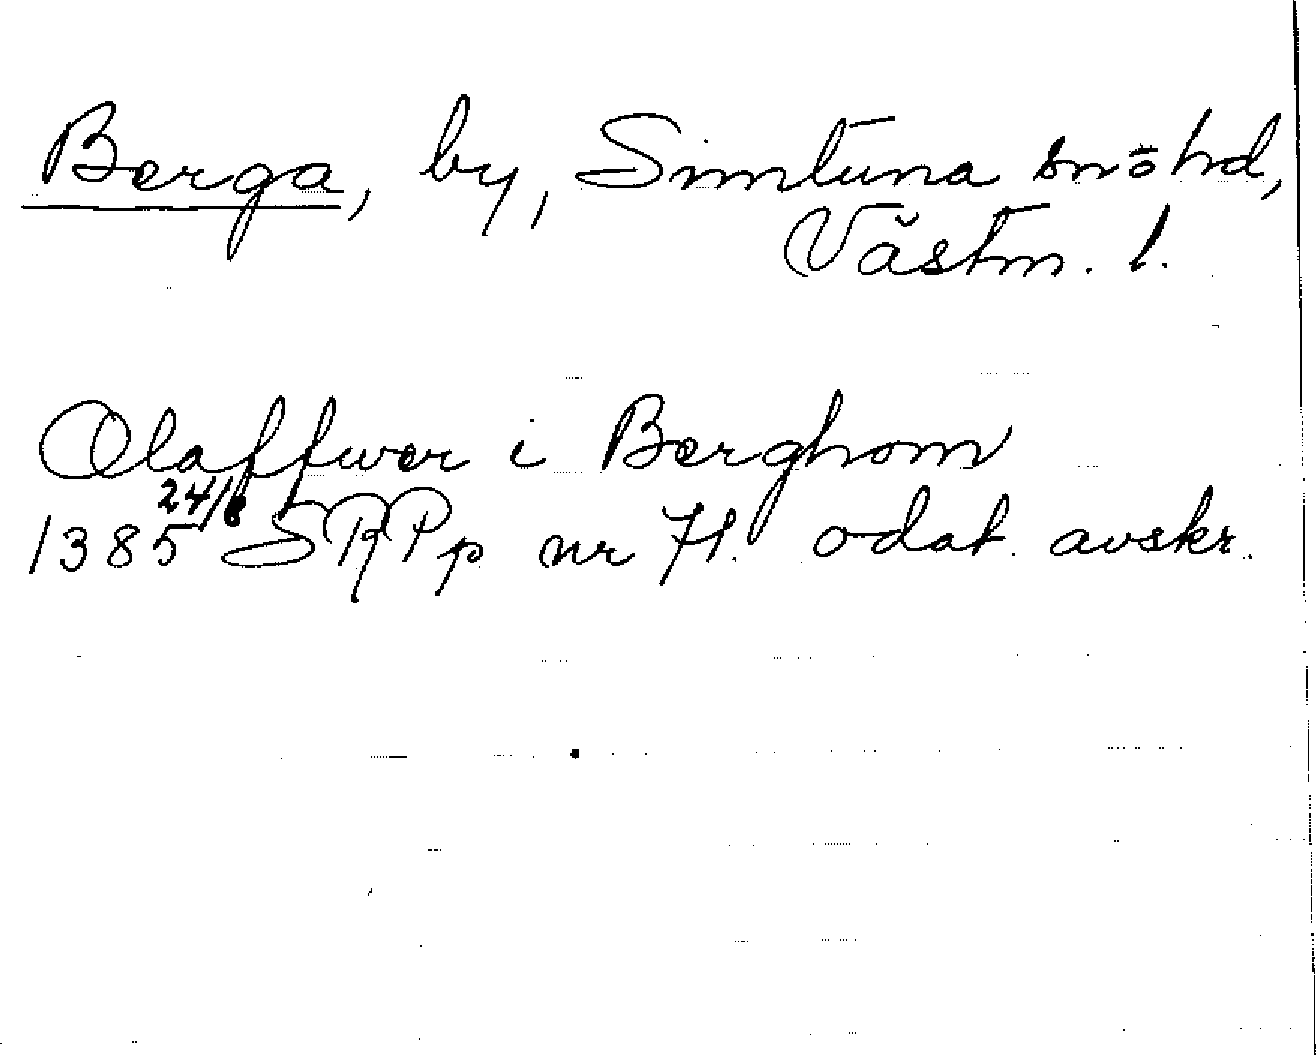 Berga, by, Simtuna snöhd,
Västm. l.
Olaffwer i Berghom
1385 24/8 SRPp nr 71. odat. avskr.